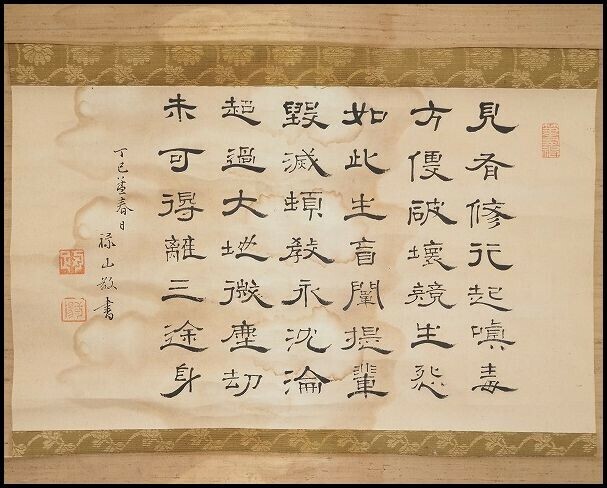 見有修行起嗔毒
方便破壞競生怨
如此生盲闡提輩
毀滅頓教永沈淪
超過大地微塵劫
未可得離三途身
丁巳孟春日
禄山敬書